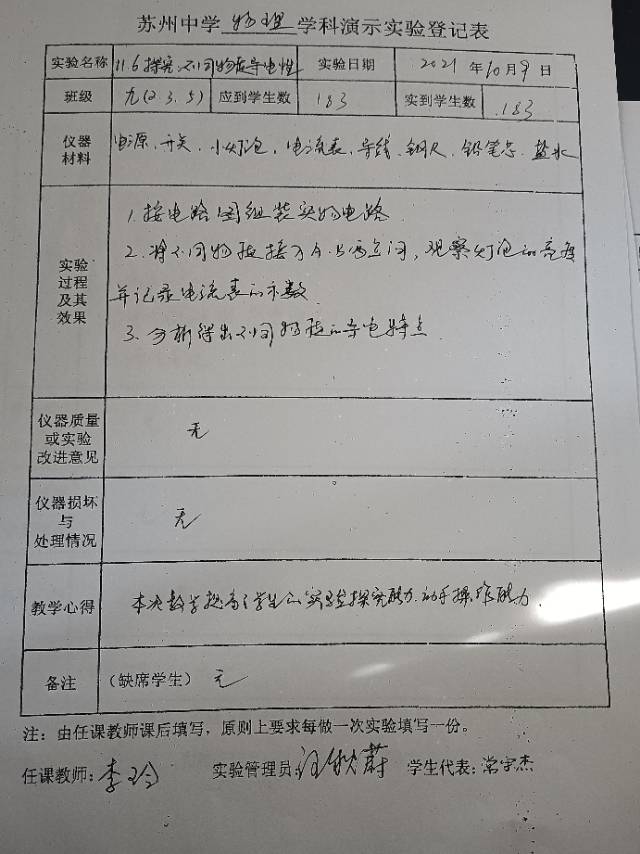 苏州中学 物理 学科演示实验登记表
实验名称 11.6探究不同物质导电性 实验日期 2021 年10月9日
班级 九(2.3.5) 应到学生数 183 实到学生数 183
仪器材料 电源、开关、小灯泡、电流表、导线、钢尺、铅笔芯、盐水
实验过程及其效果
1.按电路图组装实物电路
2.将不同物质接入A.B两点间,观察灯泡的亮度
并记录电流表的示数
3.分析得出不同物质的导电特点
仪器质量或实验改进意见 无
仪器损坏与处理情况 无
教学心得 本次教学提高了学生的实验探究能力.动手操作能力.
备注 (缺席学生) 无
注:由任课教师课后填写,原则上要求每做一次实验填写一份。
任课教师:李玲 实验管理员:汪秋蔚 学生代表:常宇杰